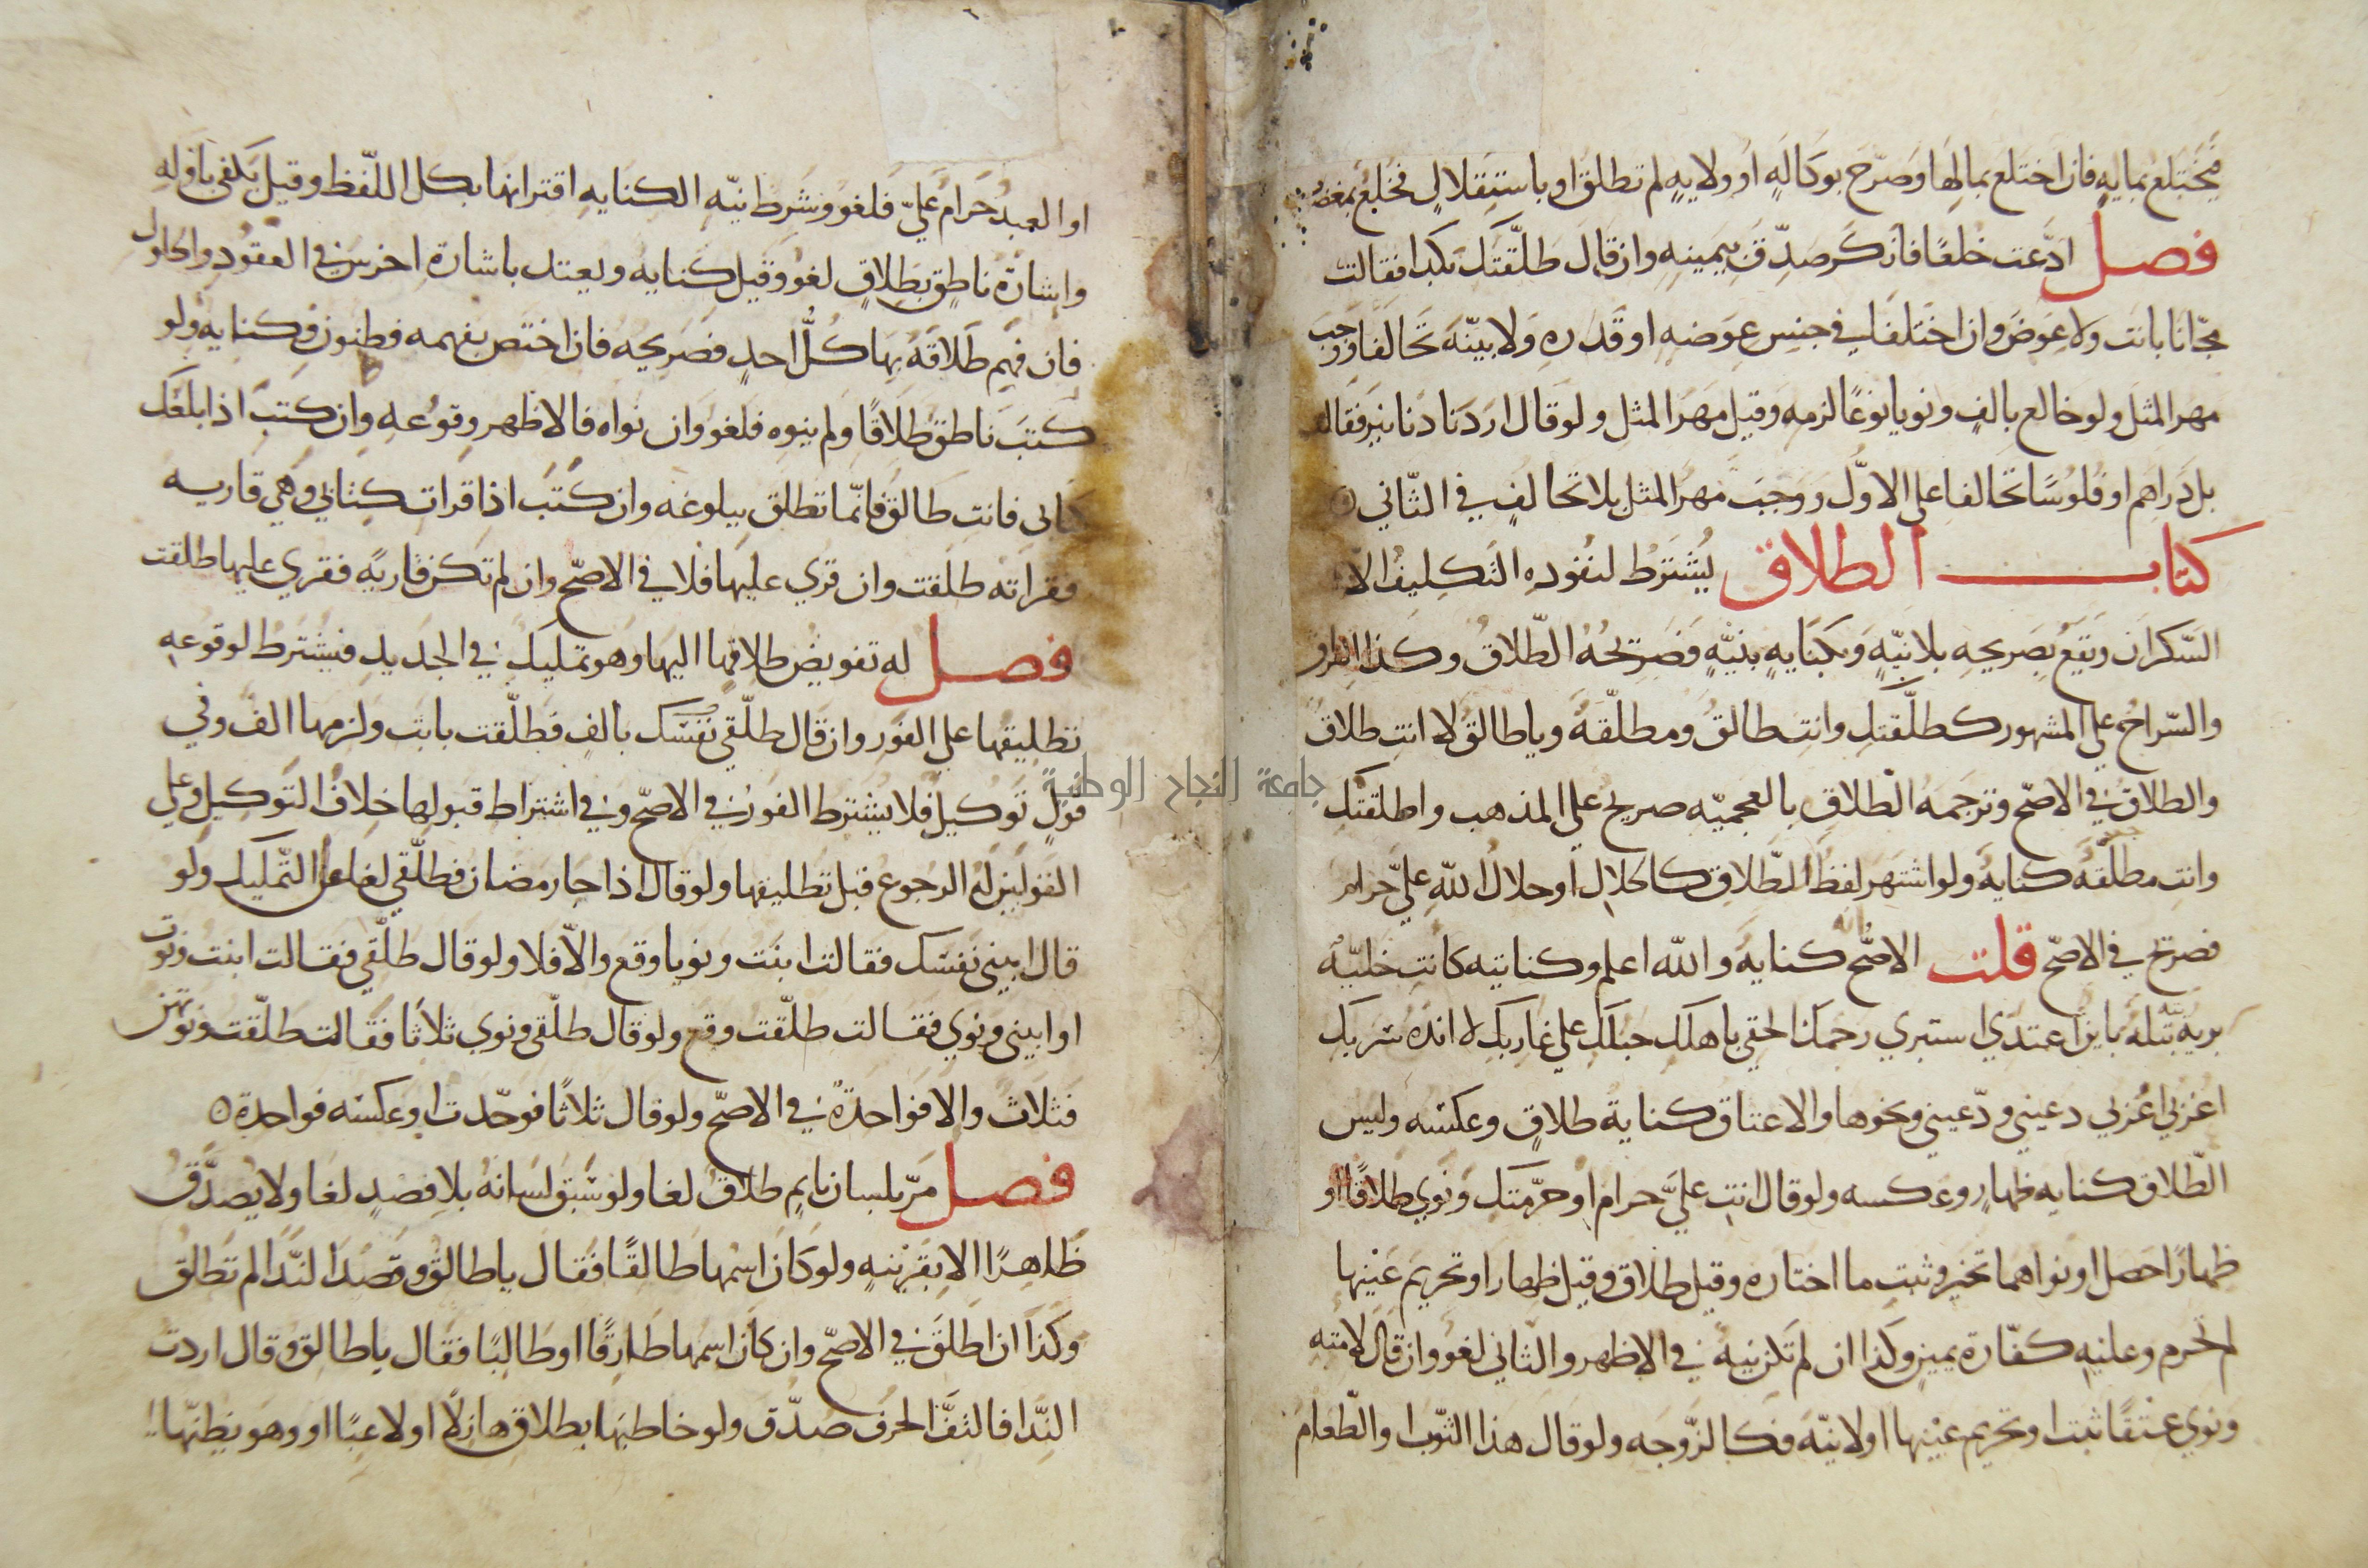 فيختلع بماليه فان اختلع بمالها وصرح بوكاله او ولايه لم تطلق او باستقلال فخلع بمغصوب
فصل ادعت خلعا فانكر صدق بيمينه وان قال طلقتك بكذا فقالت
مجانا بانت ولا عوض وان اختلفا في جنس عوضه او قدره ولا بينه تحالفا ووجب
مهر المثل ولو خالع بالف ونويا نوعا لزمه وقيل مهر المثل ولو قال اردنا دنانير فقالت
بل دراهم او فلوسا تحالفا على الاول ووجب مهر المثل بلا تحالف في الثاني
كتاب الطلاق يشترط لنفوده التكليف الا
السكران ويقع بصريحه بلا نيه وبكنايه بنيه فصريحه الطلاق وكذا الفراق
والسراح على المشهور كطلقتك وانت طالق ومطلقه ويا طالق لا انت طلاق
والطلاق في الاصح وترجمه الطلاق بالعجميه صريح على المذهب واطلقتك
وانت مطلقه كنايه ولو اشتهر لفظ للطلاق كالحلال او حلال الله علي حرام
فصريح في الاصح قلت الاصح كنايه والله اعلم وكنايته كانت خليه
بريه بتله باين اعتدي استبري رحمك الحقي باهلك حبلك على غاربك لا انده سربك
اعزبي اغربي دعيني ودعيني ونحوها والاعتاق كناية طلاق وعكسه وليس
الطلاق كنايه ظهار وعكسه ولو قال انت علي حرام او حرمتك ونوي طلاقا او
ظهارا حصل او نواهما تخير وثبت ما اختاره وقيل طلاق وقيل ظهارا او تحريم عينها
لم تحرم وعليه كفارة يمين وكذا ان لم تكن نيه في الاظهر والثاني لغو وان قال لامته
ونوي عتقا ثبت او تحريم عينها او لا نيه فكالزوجه ولو قال هذا الثوب او الطعام
او العبد حرام علي فلغو وشرط نيه الكنايه اقترانها بكل اللفظ وقيل يكفي باوله
واشارة ناطق بطلاق لغو وقيل كنايه ويعتد باشارة اخرس في العقود والحلول
فان فهم طلاقه بها كل احد فصريحه فان اختص بفهمه فطنون فكنايه ولو
كتب ناطق طلاقا ولم ينوه فلغو وان نواه فالاظهر وقوعه وان كتب اذا بلغك
كتابي فانت طالق فانما تطلق ببلوغه وان كتب اذا قرات كتابي وهي قاريه
فقراته طلقت وان قري عليها فلا في الاصح وان لم تكن قاريه فقري عليها طلقت
فصل له تفويض طلاقها اليها وهو تمليك في الجديد فيشترط لوقوعه
تطليقها على الفور وان قال طلقي نفسك بالف فطلقت بانت ولزمها الف وفي
قول توكيل فلا يشترط الفور في الاصح وفي اشتراط قبولها خلاف التوكيل وعلى
القولين له الرجوع قبل تطليقها ولو قال اذا جا رمضان فطلقي لغا على التمليك ولو
قال ابيني نفسك فقالت ابنت ونويا وقع والا فلا ولو قال طلقي فقالت ابنت ونوت
او ابيني ونوي فقالت طلقت وقع ولو قال طلقي ونوي ثلاثا فقالت طلقت ونوتهن
فثلاث والا فواحدة في الاصح ولو قال ثلاثا فوحدت او عكسه فواحدة
فصل مر بلسان نايم طلاق لغا ولو سبق لسانه بلا قصد لغا ولا يصدق
ظاهرا الا بقرينه ولو كان اسمها طالقا فقال يا طالق وقصد الندا لم تطلق
وكذا ان اطلق في الاصح وان كان اسمها طارقا او طالبا فقال يا طالق وقال اردت
الندا فالتف الحرف صدق ولو خاطبها بطلاق هازلا او لاعبا او وهو يظنها
جامعة النجاح الوطنية